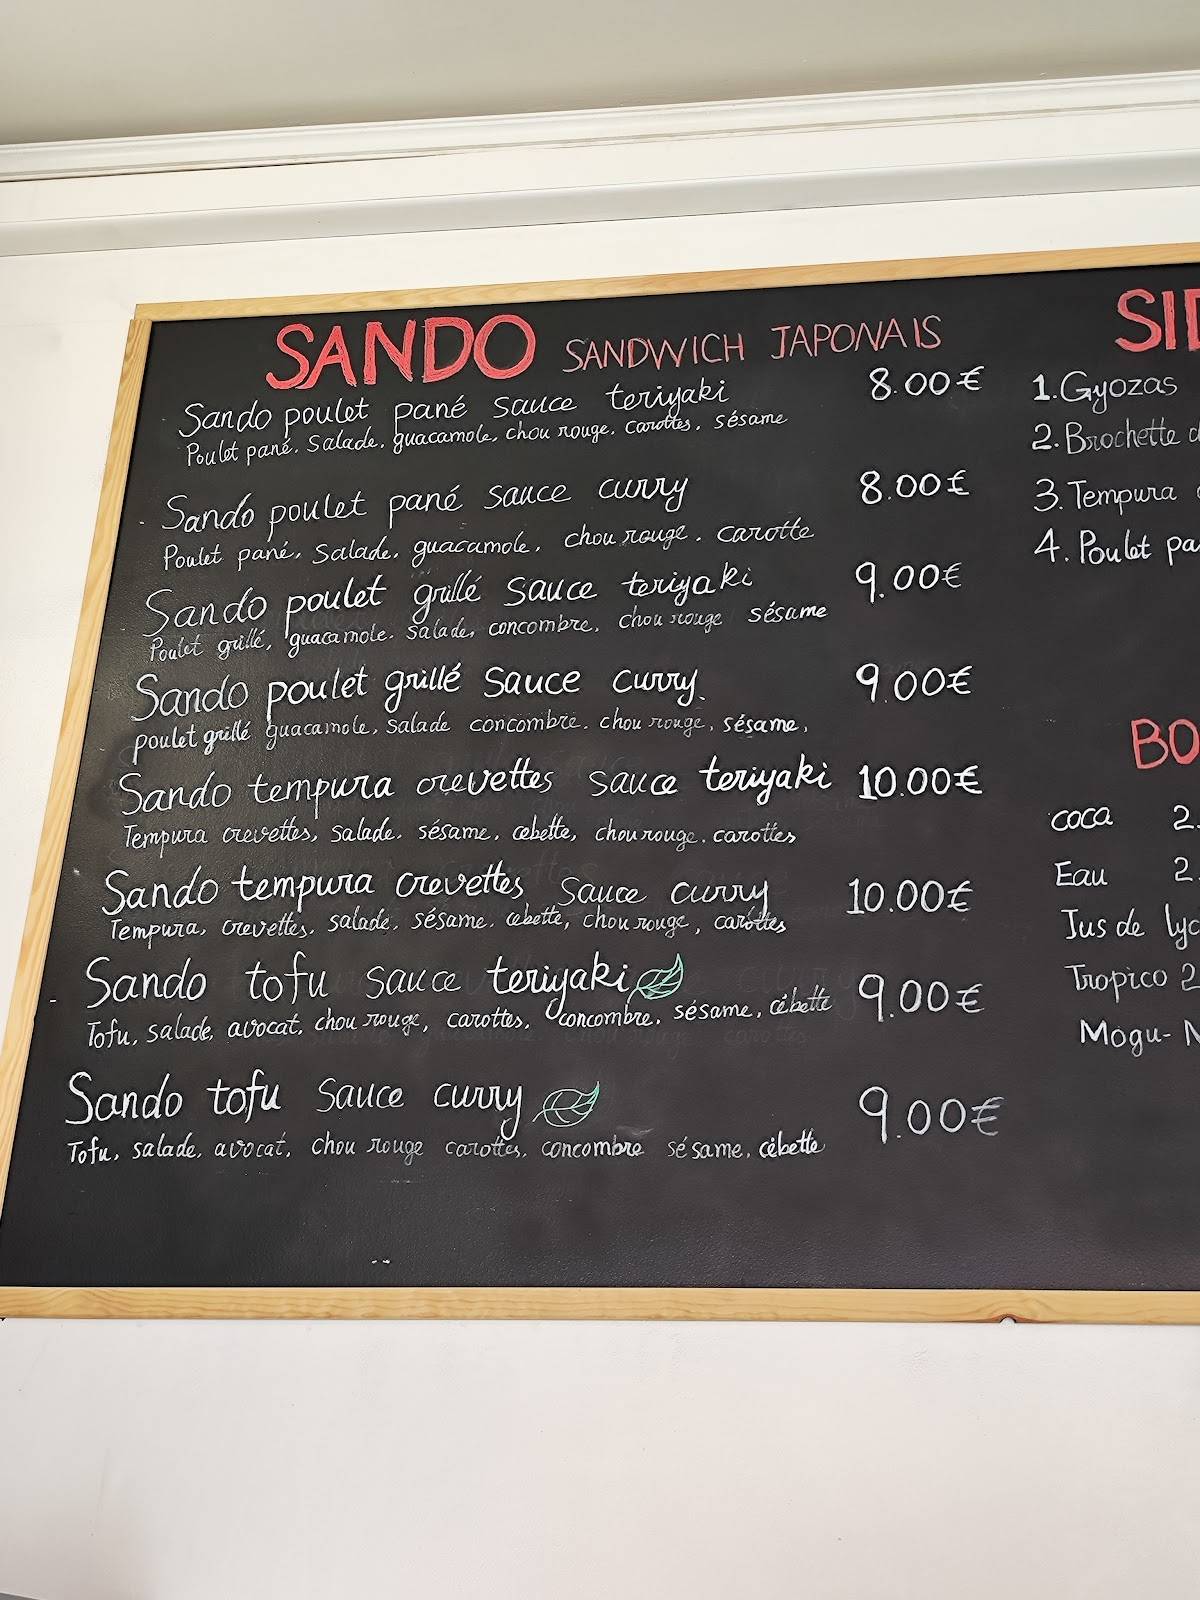 SANDO SANDWICH JAPONAIS
Sando poulet pané sauce teriyaki 8.00€
Poulet pané, salade, guacamole, chou rouge, carottes, sésame
Sando poulet pané sauce curry 8.00€
Poulet pané, salade, guacamole, chou rouge, carotte
Sando poulet grillé sauce teriyaki 9.00€
Poulet grillé, guacamole, salade, concombre, chou rouge sésame
Sando poulet grillé sauce curry 9.00€
poulet grillé guacamole, salade concombre, chou rouge, sésame,
Sando tempura crevettes sauce teriyaki 10.00€
Tempura crevettes, salade, sésame, cebette, chou rouge, carottes
Sando tempura crevettes sauce curry 10.00€
Tempura, crevettes, salade, sésame, cebette, chou rouge, carottes
Sando tofu sauce teriyaki 9.00€
Tofu, salade, avocat, chou rouge, carottes, concombre, sésame, cébette
Sando tofu sauce curry 9.00€
Tofu, salade, avocat, chou rouge carottes, concombre sésame, cébette
SID
1. Gyozas
2. Brochette d
3. Tempura
4. Poulet pa
BO
coca 2.
Eau 2.
Jus de lyc
Tropico 2
Mogu-